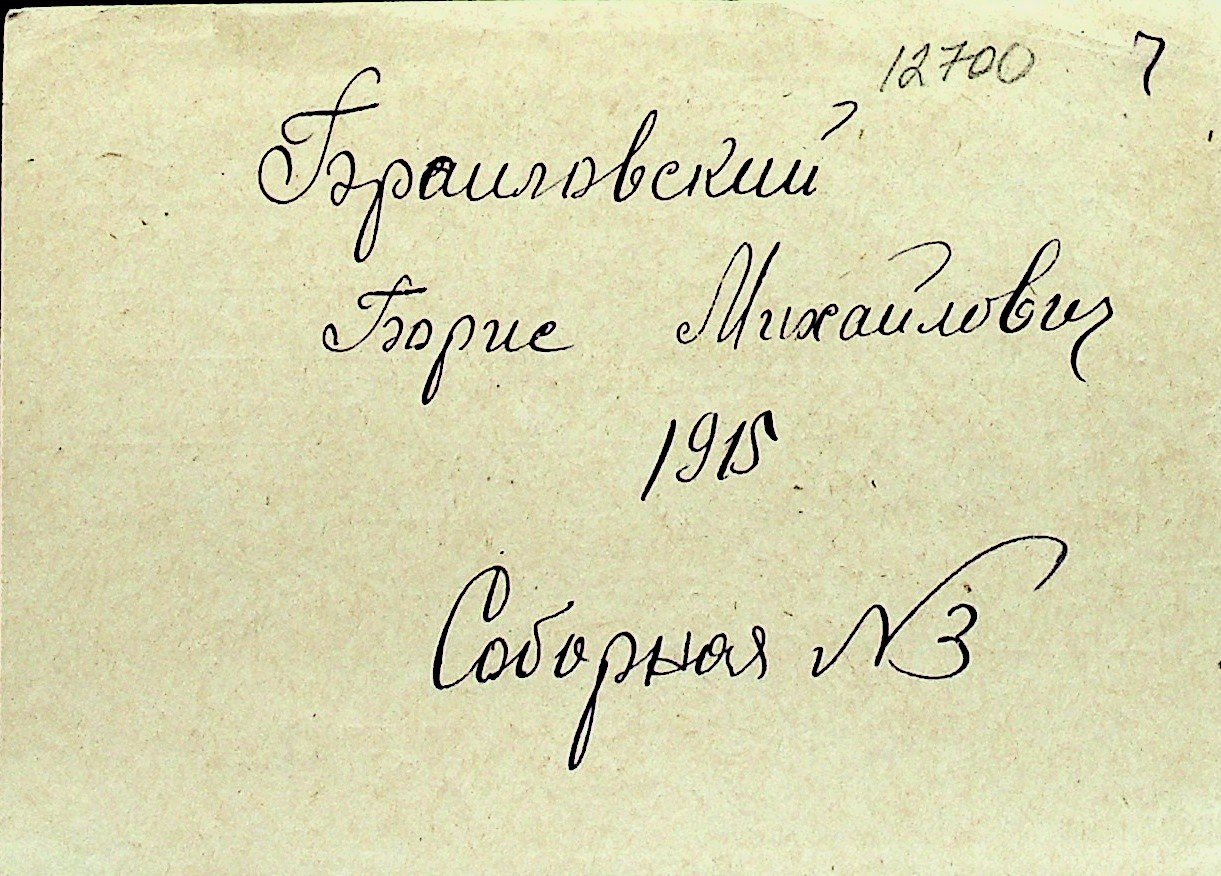 12700 7
Браиловский
Борис Михайлович
1915
Соборная №3